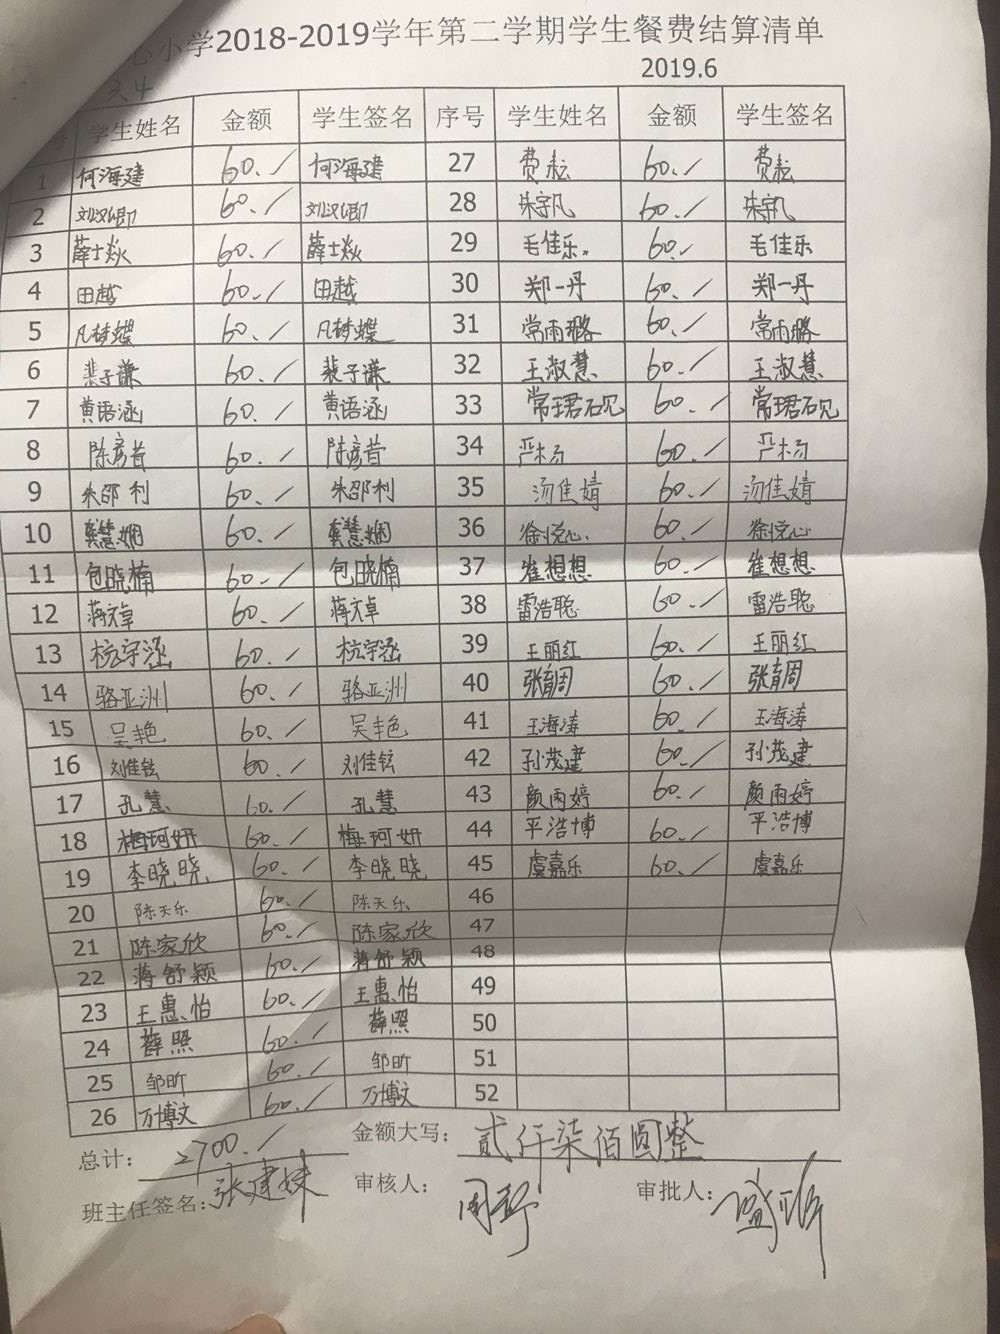 心小学2018-2019学年第二学期学生餐费结算清单
2019.6
学生姓名 金额 学生签名 序号 学生姓名 金额 学生签名
1 何海建 60./ 何海建 27 费耘 60./ 费耘
2 刘汉卿 60./ 刘汉卿 28 朱宇凡 60./ 朱宇凡
3 薛士焱 60./ 薛士焱 29 毛佳乐. 60./ 毛佳乐
4 田越 60./ 田越 30 郑一丹 60./ 郑一丹
5 凡梦蝶 60./ 凡梦蝶 31 常雨璐 60./ 常雨璐
6 裴子谦 60./ 裴子谦 32 王淑慧 60./ 王淑慧
7 黄语涵 60./ 黄语涵 33 常珺砚 60./ 常珺砚
8 陈彦首 60./ 陈彦首 34 严杨 60./ 严杨
9 朱邵利 60./ 朱邵利 35 汤佳婧 60./ 汤佳婧
10 龚慧娴 60./ 龚慧娴 36 徐悦心 60./ 徐悦心
11 包晓楠 60./ 包晓楠 37 崔想想 60./ 崔想想
12 蒋文卓 60./ 蒋文卓 38 雷浩聪 60./ 雷浩聪
13 杭宇涵 60./ 杭宇涵 39 王丽红 60./ 王丽红
14 骆亚洲 60./ 骆亚洲 40 张育周 60./ 张育周
15 吴艳 60./ 吴艳 41 王海涛 60./ 王海涛
16 刘佳铉 60./ 刘佳铉 42 孙茂建 60./ 孙茂建
17 孔慧 60./ 孔慧 43 颜雨婷 60./ 颜雨婷
18 梅珂妍 60./ 梅珂妍 44 平浩博 60./ 平浩博
19 李晓晓 60./ 李晓晓 45 虞嘉乐 60./ 虞嘉乐
20 陈天乐 60./ 陈天乐 46
21 陈家欣 60./ 陈家欣 47
22 蒋舒颖 60./ 蒋舒颖 48
23 王惠怡 60./ 王惠怡 49
24 薛照 60./ 薛照 50
25 邹昕 60./ 邹昕 51
26 万博文 60./ 万博文 52
总计: 2700./ 金额大写: 贰仟柒佰圆整
班主任签名: 张建妹 审核人: 审批人: